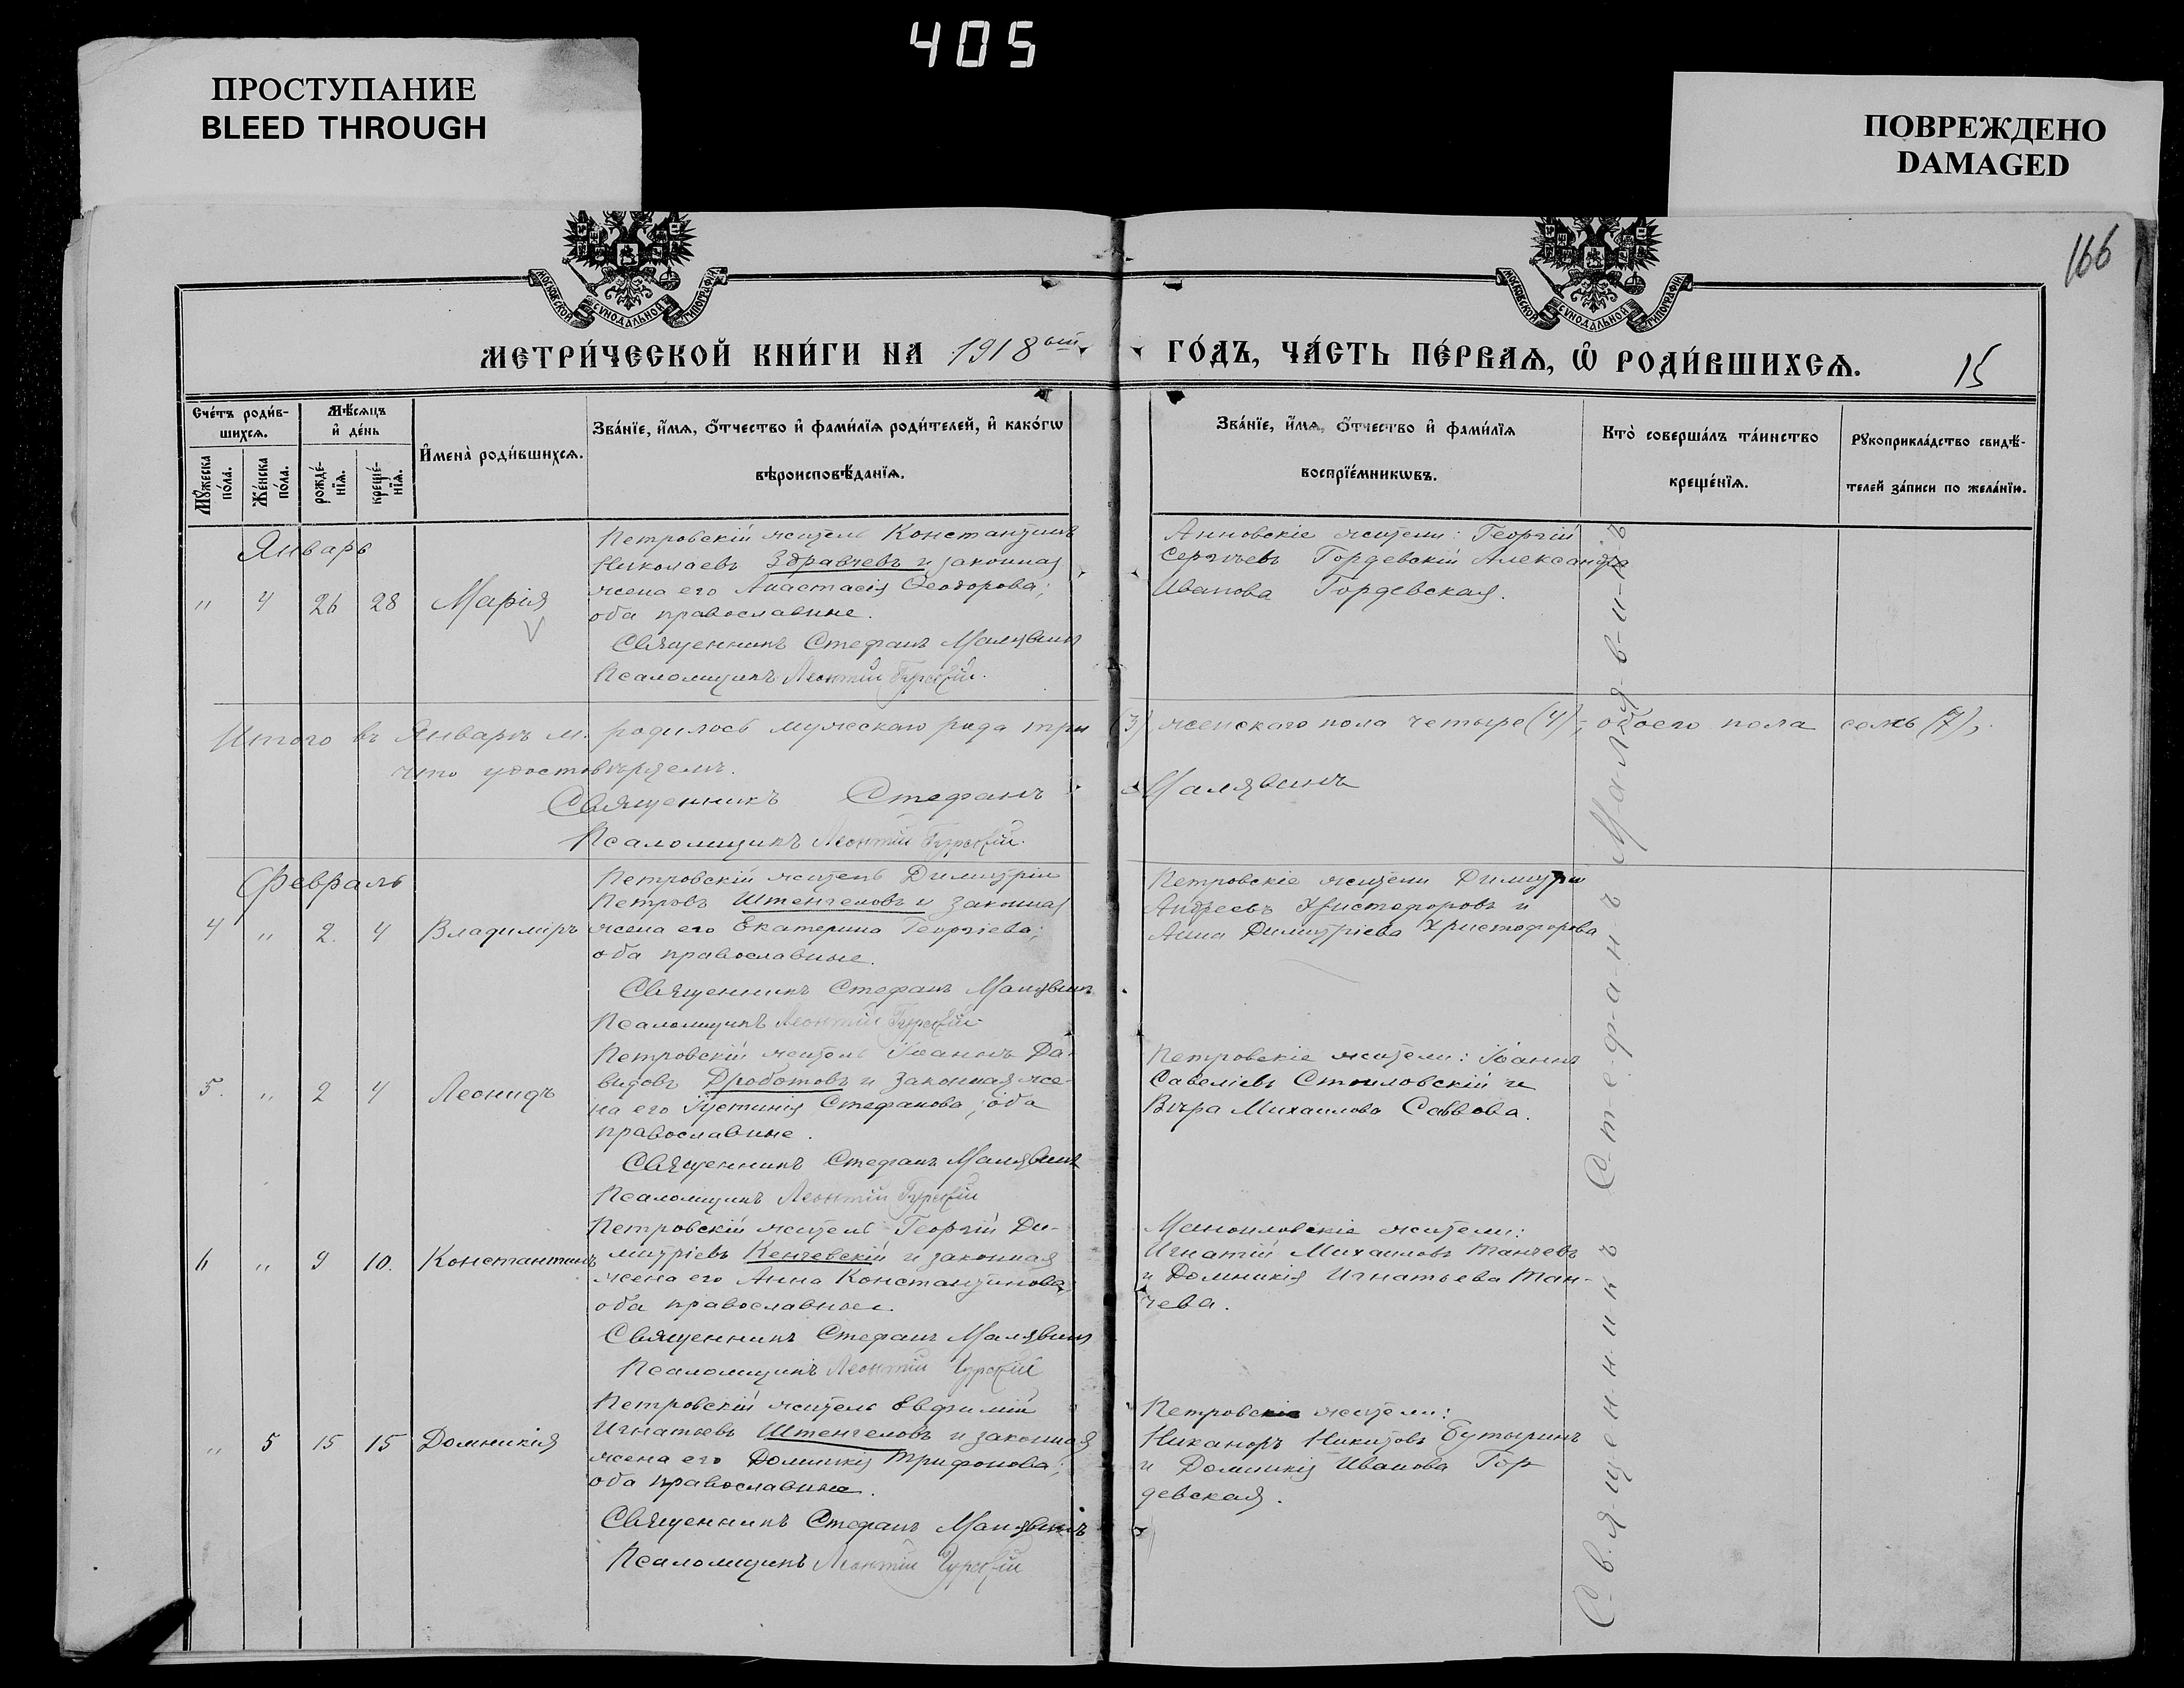 405
ПРОСТУПАНИЕ
BLEED THROUGH
ПОВРЕЖДЕНО
DAMAGED
166
МОСКОВСКОЙ СѴНОДАЛЬНОЙ ТИПОГРАФІИ
МОСКОВСКОЙ СѴНОДАЛЬНОЙ ТИПОГРАФІИ
МЕТРИ́ЧЕСКОЙ КНИ́ГИ НА 1918 ый ГО́ДЪ, ЧА́СТЬ ПЕ́РВАѦ, Ѡ҆ РОДИ́ВШИХСѦ.
15
Сче́тъ роди́в-
шихсѧ.
Мꙋ́жеска
по́ла.
Же́нска
по́ла.
Мѣ́сѧцъ
и҆ де́нь
рожде́-
нїѧ.
креще́-
нїѧ.
И҆мена̀ роди́вшихсѧ.
Зва́нїе, и҆́мѧ, ѻ҆́тчество и҆ фами́лїѧ роди́телей, и҆ како́гѡ
вѣроисповѣ́данїѧ.
Зва́нїе, и҆́мѧ, ѻ҆́тчество и҆ фами́лїѧ
воспрїе́мникѡвъ.
Кто̀ соверша́лъ та́инство
креще́нїѧ.
Рꙋкоприкла́дство свидѣ́-
телей за́писи по жела́нїю.
Январь
" 4 26 28 Марія
Петровскій житель Константинъ
Николаевъ Здравчевъ и законная
жена его Анастасія Ѳеодорова;
оба православные.
Священникъ Стефанъ Малявинъ
Псаломщикъ Леонтій Гурскій.
Анновскіе жители: Георгій
Сергѣевъ Гордевскій Александра
Иванова Гордевская.
Итого въ Январѣ м. родилось мужескаго рода три (3) женскаго пола четыре (4); обоего пола семь (7),
что удостовѣряемъ.
Священникъ Стефанъ Малявинъ
Псаломщикъ Леонтій Гурскій.
Февраль
4 " 2. 4 Владиміръ
Петровскій житель Димитрій
Петровъ Штенгеловъ и законная
жена его Екатерина Георгіева;
оба православные.
Священникъ Стефанъ Малявинъ
Псаломщикъ Леонтій Гурскій
Петровскіе жители Димитрій
Андреевъ Христофоровъ и
Анна Димитріева Христофорова
5. " 2 4 Леонидъ
Петровскій житель Іоаннъ Да-
видовъ Дроботовъ и законная же-
на его Іустинія Стефанова; оба
православные.
Священникъ Стефанъ Малявинъ
Псаломщикъ Леонтій Гурскій
Петровскіе жители: Іоаннъ
Савеліевъ Стоиловскій и
Вѣра Михаилова Саввова.
6 " 9 10. Константинъ
Петровскій житель Георгій Ди-
митріевъ Кенчевскій и законная
жена его Анна Константинова;
оба православные.
Священникъ Стефанъ Малявинъ
Псаломщикъ Леонтій Гурскій
Маноиловскіе жители:
Игнатій Михаиловъ Танчевъ
и Домникія Игнатьева Тан-
чева.
" 5 15 15 Домникія
Петровскій житель Евфимій
Игнатьевъ Штенгеловъ и законная
жена его Домникія Трифонова;
оба православные.
Священникъ Стефанъ Малявинъ
Псаломщикъ Леонтій Гурскій
Петровскіе жители:
Никаноръ Никитовъ Бутыринъ
и Домникія Иванова Гор
девская.
С-в-я-щ-е-н-н-и-к-ъ С-т-е-ф-а-н-ъ М-а-л-я-в-и-н-ъ